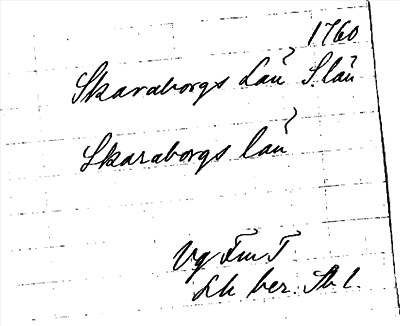 1760
Skaraborgs Län S. län
Skaraborgs län
Vg Fm T
Lh ber. Sh l.